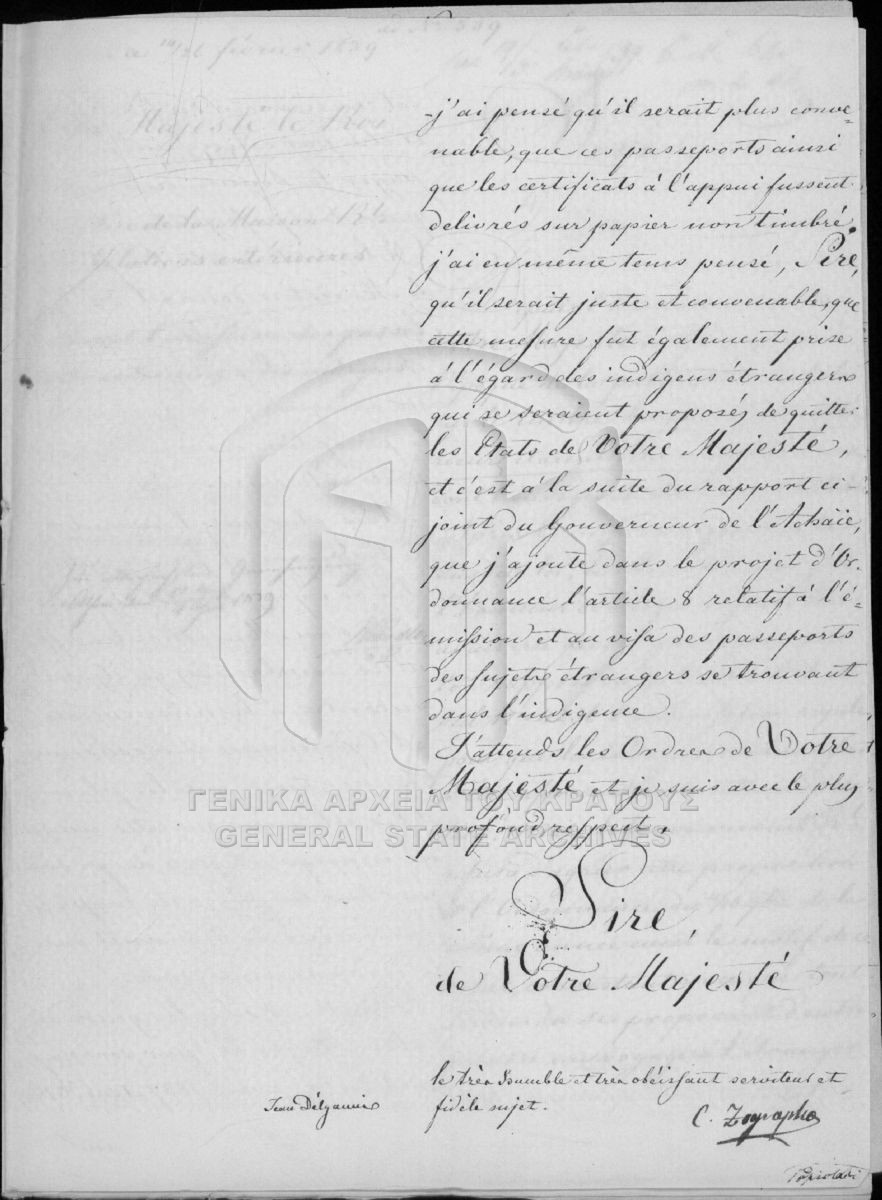 j'ai pensé qu'il serait plus conve-
nable, que ces passeports ainsi
que les certificats à l'appui fussent
delivrés sur papier non timbré.
j'ai en même tems pensé, Sire,
qu'il serait juste et convenable, que
cette mesure fut également prise
à l'égard des indigens étrangers
qui se seraient proposés de quitter
les Etats de Votre Majesté,
et c'est à la suite du rapport ci-
joint du Gouverneur de l'Achaïe,
que j'ajoute dans le projet d'Or-
donnance l'article 8 relatif à l'é-
mission et au visa des passeports
des sujets étrangers se trouvant
dans l'indigence.
J'attends les Ordres de Votre
Majesté et je suis avec le plus
profond respect,
ΓΕΝΙΚΑ ΑΡΧΕΙΑ ΤΟΥ ΚΡΑΤΟΥΣ
GENERAL STATE ARCHIVES
Sire,
de Votre Majesté
le très humble et très obéissant serviteur et
fidèle sujet.
Jean Délyannis
C. Zographos